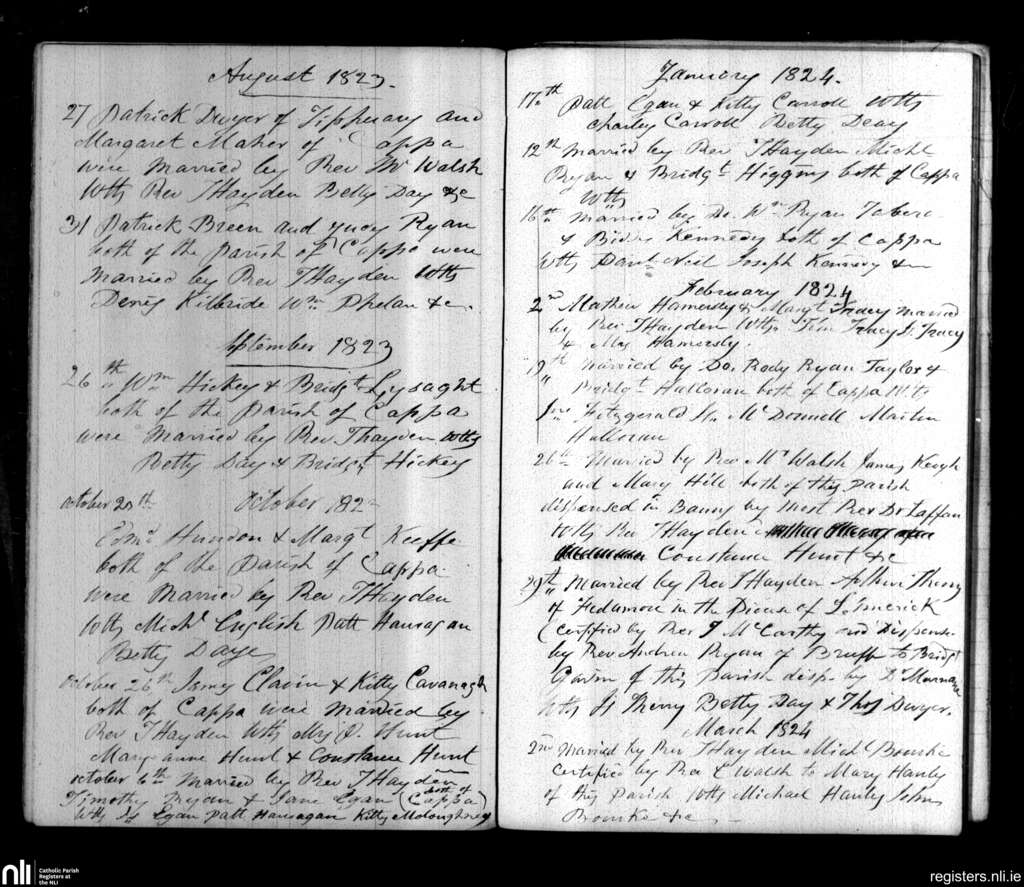 August 1823.
27 Patrick Dwyer of Tipperary and
Margaret Maher of Cappa
were married by Rev Mr Walsh
Wtts Rev THayden Betty Day &c
31 Patrick Breen and Ryan
both of the Parish of Cappa were
Married by Rev THayden Wtts
Denis Kilbride Wm Phelan &c.
September 1823
26th Wm Hickey & Bridgt Lysaght
both of the Parish of Cappa
were Married by Rev THayden Wtts
Betty Day & Bridgt Hickey
october 20th October 182
Edmd Hundon & Margt Keeffe
both of the Parish of Cappa
were Married by Rev THayden
Wtts Michl English Patt Hanragan
Betty Daye
october 26th James Clavin & Kitty Cavanagh
both of Cappa were married by
Rev THayden Wtts Hunt
Mary anne Hunt & Constance Hunt
october 6th married by Rev THayden
Timothy Ryan & Jane Egan (both of Cappa)
Wtts Js Egan Patt Hanragan Kitty McLoughney
January 1824.
17th Patt Egan & Kitty Carroll Wtts
Charley Carroll Betty Deay
12th Married by Rev THayden Michl
Ryan & Bridgt Higgins both of Cappa
Wtts
16th Married by Do. Wm Ryan
& Biddy Kennedy both of Cappa
Wtts Danl Neil Joseph Kennedy &c
February 1824
2nd Mathew Hamersly & Margt Tracy married
by Rev THayden Wtts Tim Tracy Js Tracy
& Hamersly.
19th Married by Do. Rody Ryan Taylor &
Bridgt Halloran both of Cappa Wtts
Jno Fitzgerald Js McDonnell Martin
Halloran
26th Married by Rev Mr Walsh James Keogh
and Mary Hill both of this Parish
dispensed in Banns by most Rev Dr Laffan
Wtts Rev THayden
Constance Hunt &c
29th Married by Rev THayden Arthur Therry
of Fedamore in the Diocess of Limerick
(certified by Rev J McCarthy and Dispense.
by Rev Andrew Ryan of Bruff to Bridgt
of this Parish disp. by Dr
Wtts Js Therry Betty Day & Thos Dwyer.
March 1824
2nd Married by Rev THayden Michl Bourke
Certified by Rev C Walsh to Mary Hanly
of this Parish Wtts Michael Hanly John
Bourke &c
nli Catholic Parish
Registers at
the NLI
registers.nli.ie